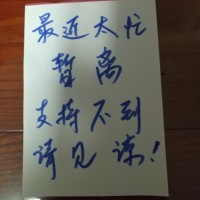 最近太忙
暂离
支持不到
请见谅!